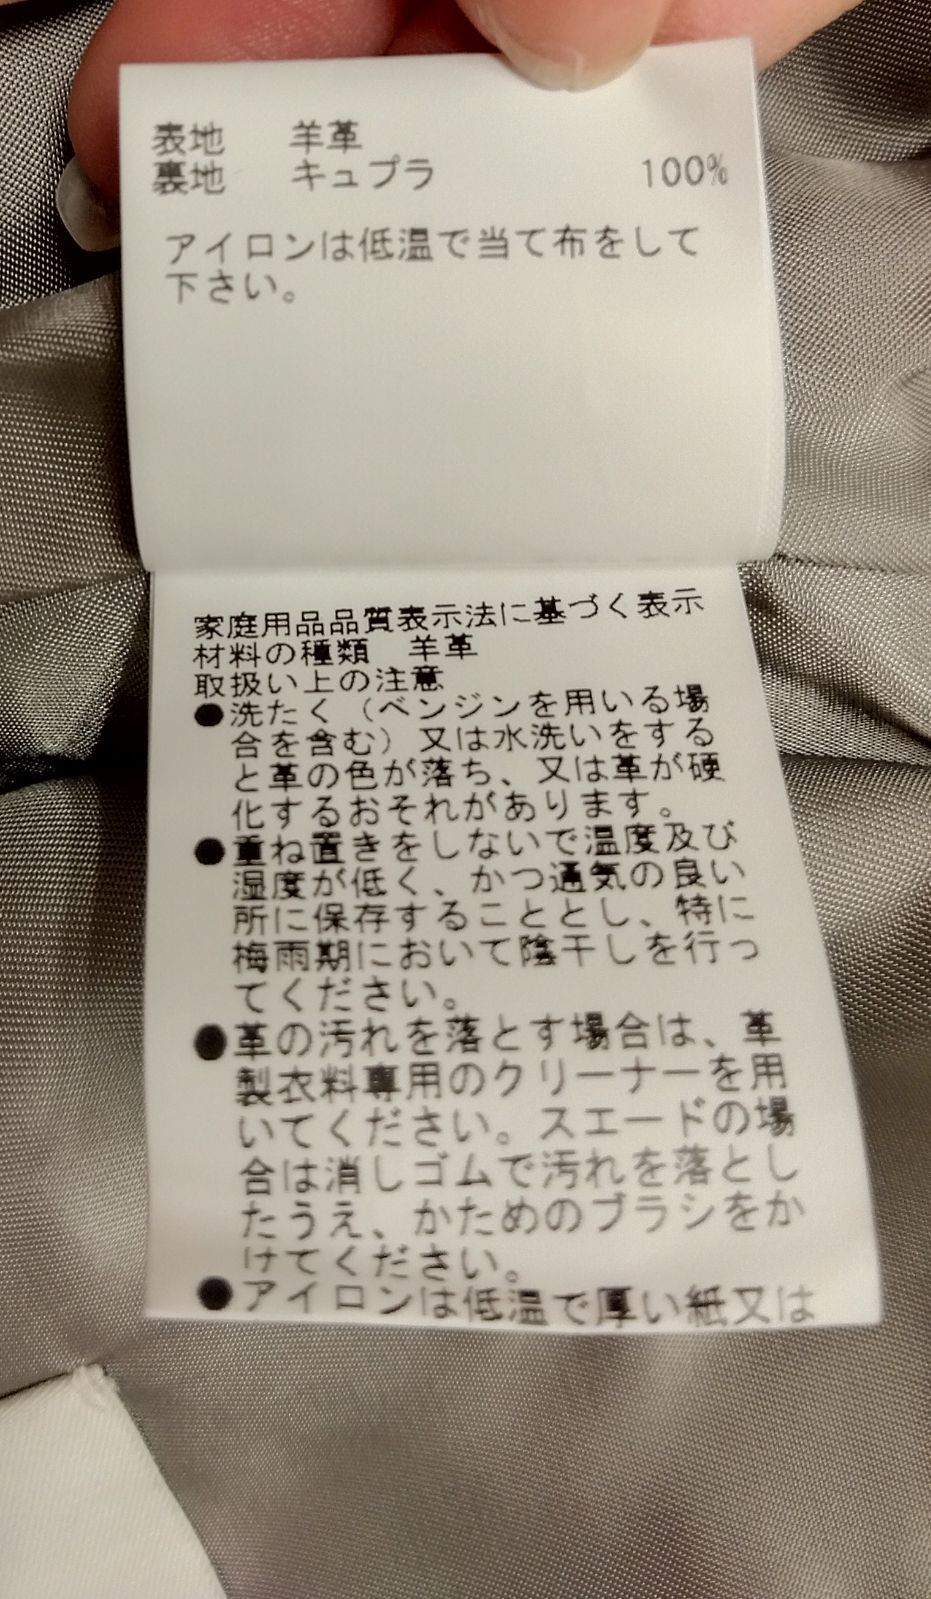 表地　羊革
裏地　キュプラ　100%
アイロンは低温で当て布をして
下さい。
家庭用品品質表示法に基づく表示
材料の種類　羊革
取扱い上の注意
●洗たく（ベンジンを用いる場
合を含む）又は水洗いをする
と革の色が落ち、又は革が硬
化するおそれがあります。
●重ね置きをしないで温度及び
湿度が低く、かつ通気の良い
所に保存することとし、特に
梅雨期において陰干しを行っ
てください。
●革の汚れを落とす場合は、革
製衣料専用のクリーナーを用
いてください。スエードの場
合は消しゴムで汚れを落とし
たうえ、かためのブラシをか
けてください。
●アイロンは低温で厚い紙又は